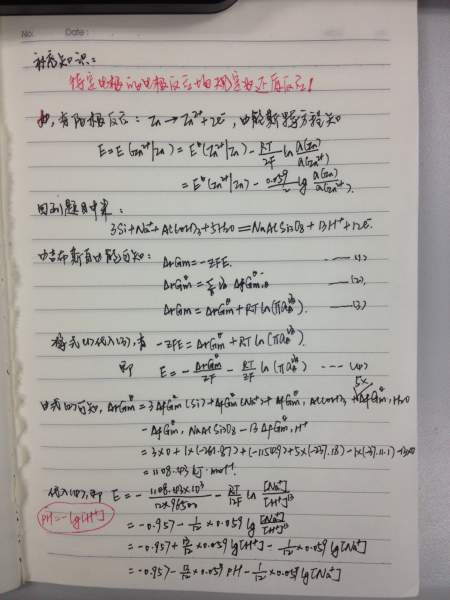 No.    Date:
补充知识:
特定电极的电极反应均规定为还原反应!
如,有阳极反应: Zn → Zn²⁺+2e⁻, 由能斯特方程知
E=E(Zn²⁺|Zn) = E^θ(Zn²⁺|Zn) - RT/2F ln a(Zn)/a(Zn²⁺)
= E^θ(Zn²⁺|Zn) - 0.059/2 lg a(Zn)/a(Zn²⁺).
回到题目中来:
3Si+Na⁺+Al(OH)₃+5H₂O = NaAlSi₃O₈+13H⁺+12e⁻.
由吉布斯自由能可知: ΔrGm = -zFE. ——(1)
ΔrGm^θ = ΔfGm^θ ——(2).
ΔrGm = ΔrGm^θ + RT ln(πa_B^νB). ——(3)
将式(1)代入(3),有 -zFE = ΔrGm^θ + RT ln(πa_B^νB).
即 E = -ΔrGm^θ/zF - RT/zF ln(πa_B^νB) ---(4)
由式(2)可知, ΔrGm^θ = 3ΔfGm^θ(Si)+ΔfGm^θ(Na⁺)+ΔfGm^θ, Al(OH)₃ + 5×ΔfGm^θ, H₂O
- ΔfGm^θ, NaAlSi₃O₈ - 13ΔfGm^θ, H⁺
= 3×0 + 1×(-261.87) + 5×(-237.18) - 1×
= 1108.43 kJ·mol⁻¹.
代入(4),即 E = - 1108.43×10³/12×96500 - RT/12F ln [Na⁺]/[H⁺]¹³
pH=-lg[H⁺]
= -0.957 - 1/12×0.059 lg [Na⁺]/[H⁺]¹³
= -0.957 + 13/12×0.059 lg[H⁺] - 1/12×0.059 lg[Na⁺]
= -0.957 - 13/12×0.059 pH - 1/12×0.059 lg[Na⁺]